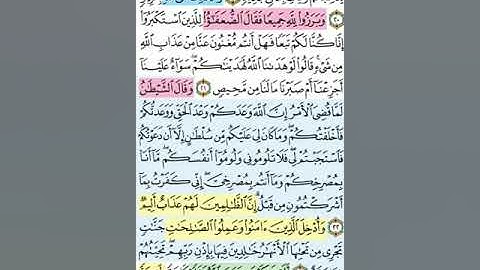 وَبَرَزُوا۟ لِلَّهِ جَمِيعًا فَقَالَ ٱلضُّعَفَـٰٓؤُا۟ لِلَّذِينَ ٱسْتَكْبَرُوٓا۟
إِنَّا كُنَّا لَكُمْ تَبَعًا فَهَلْ أَنتُم مُّغْنُونَ عَنَّا مِنْ عَذَابِ ٱللَّهِ
مِن شَىْءٍ ۚ قَالُوا۟ لَوْ هَدَىٰنَا ٱللَّهُ لَهَدَيْنَـٰكُمْ ۖ سَوَآءٌ عَلَيْنَآ
أَجَزِعْنَآ أَمْ صَبَرْنَا مَا لَنَا مِن مَّحِيصٍ ٢١ وَقَالَ ٱلشَّيْطَـٰنُ
لَمَّا قُضِىَ ٱلْأَمْرُ إِنَّ ٱللَّهَ وَعَدَكُمْ وَعْدَ ٱلْحَقِّ وَوَعَدتُّكُمْ
فَأَخْلَفْتُكُمْ ۖ وَمَا كَانَ لِىَ عَلَيْكُم مِّن سُلْطَـٰنٍ إِلَّآ أَن دَعَوْتُكُمْ
فَٱسْتَجَبْتُمْ لِى ۖ فَلَا تَلُومُونِى وَلُومُوٓا۟ أَنفُسَكُم ۖ مَّآ أَنَا۠
بِمُصْرِخِكُمْ وَمَآ أَنتُم بِمُصْرِخِىَّ ۖ إِنِّى كَفَرْتُ بِمَآ
أَشْرَكْتُمُونِ مِن قَبْلُ ۗ إِنَّ ٱلظَّـٰلِمِينَ لَهُمْ عَذَابٌ أَلِيمٌ
٢٢ وَأُدْخِلَ ٱلَّذِينَ ءَامَنُوا۟ وَعَمِلُوا۟ ٱلصَّـٰلِحَـٰتِ جَنَّـٰتٍ
تَجْرِى مِن تَحْتِهَا ٱلْأَنْهَـٰرُ خَـٰلِدِينَ فِيهَا بِإِذْنِ رَبِّهِمْ ۖ تَحِيَّتُهُمْ